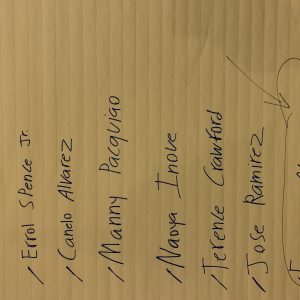 / Errol Spence Jr.
/ Canelo Alvarez
/ Manny Pacquiao
/ Naoya Inoue
/ Terence Crawford
/ Jose Ramirez